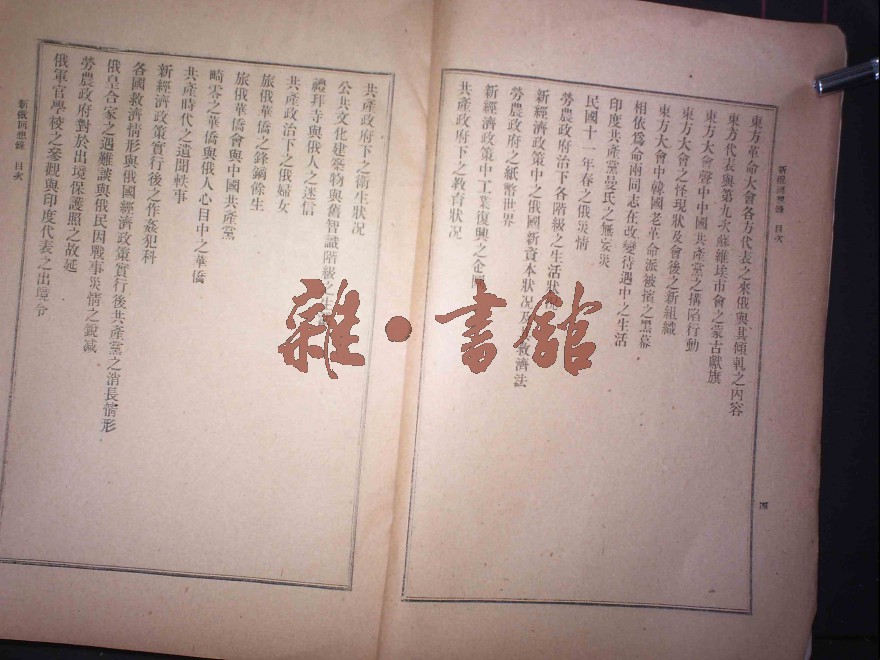 新俄回想錄 目次
四
東方革命大會各方代表之來俄與其傾軋之內容
東方代表與第九次蘇維埃市會之蒙古獻旗
東方大會聲中中國共產黨之搆陷行動
東方大會之怪現狀及會後之新組織
東方大會中韓國老革命派被擯之黑幕
相依爲命兩同志在改變待遇中之生活
印度共產黨曼氏之無妄災
民國十一年春之俄災情
勞農政府治下各階級之生活狀
新經濟政策中之俄國新資本狀況及 救濟法
勞農政府之紙幣世界
新經濟政策中工業復興之企圖
共產政府下之教育狀况
共產政府下之衛生狀况
公共文化建築物與舊智識階級之生
禮拜寺與俄人之迷信
共產政治下之俄婦女
旅俄華僑之鋒鏑餘生
旅俄華僑會與中國共產黨
畸零之華僑與俄人心目中之華僑
共產時代之遺聞軼事
新經濟政策實行後之作姦犯科
各國救濟情形與俄國經濟政策實行後共產黨之消長情形
俄皇合家之遇難談與俄民因戰事災情之銳减
勞農政府對於出境保護照之故延
俄軍官學校之參觀與印度代表之出境令
新俄回想錄 目次
雜·書館